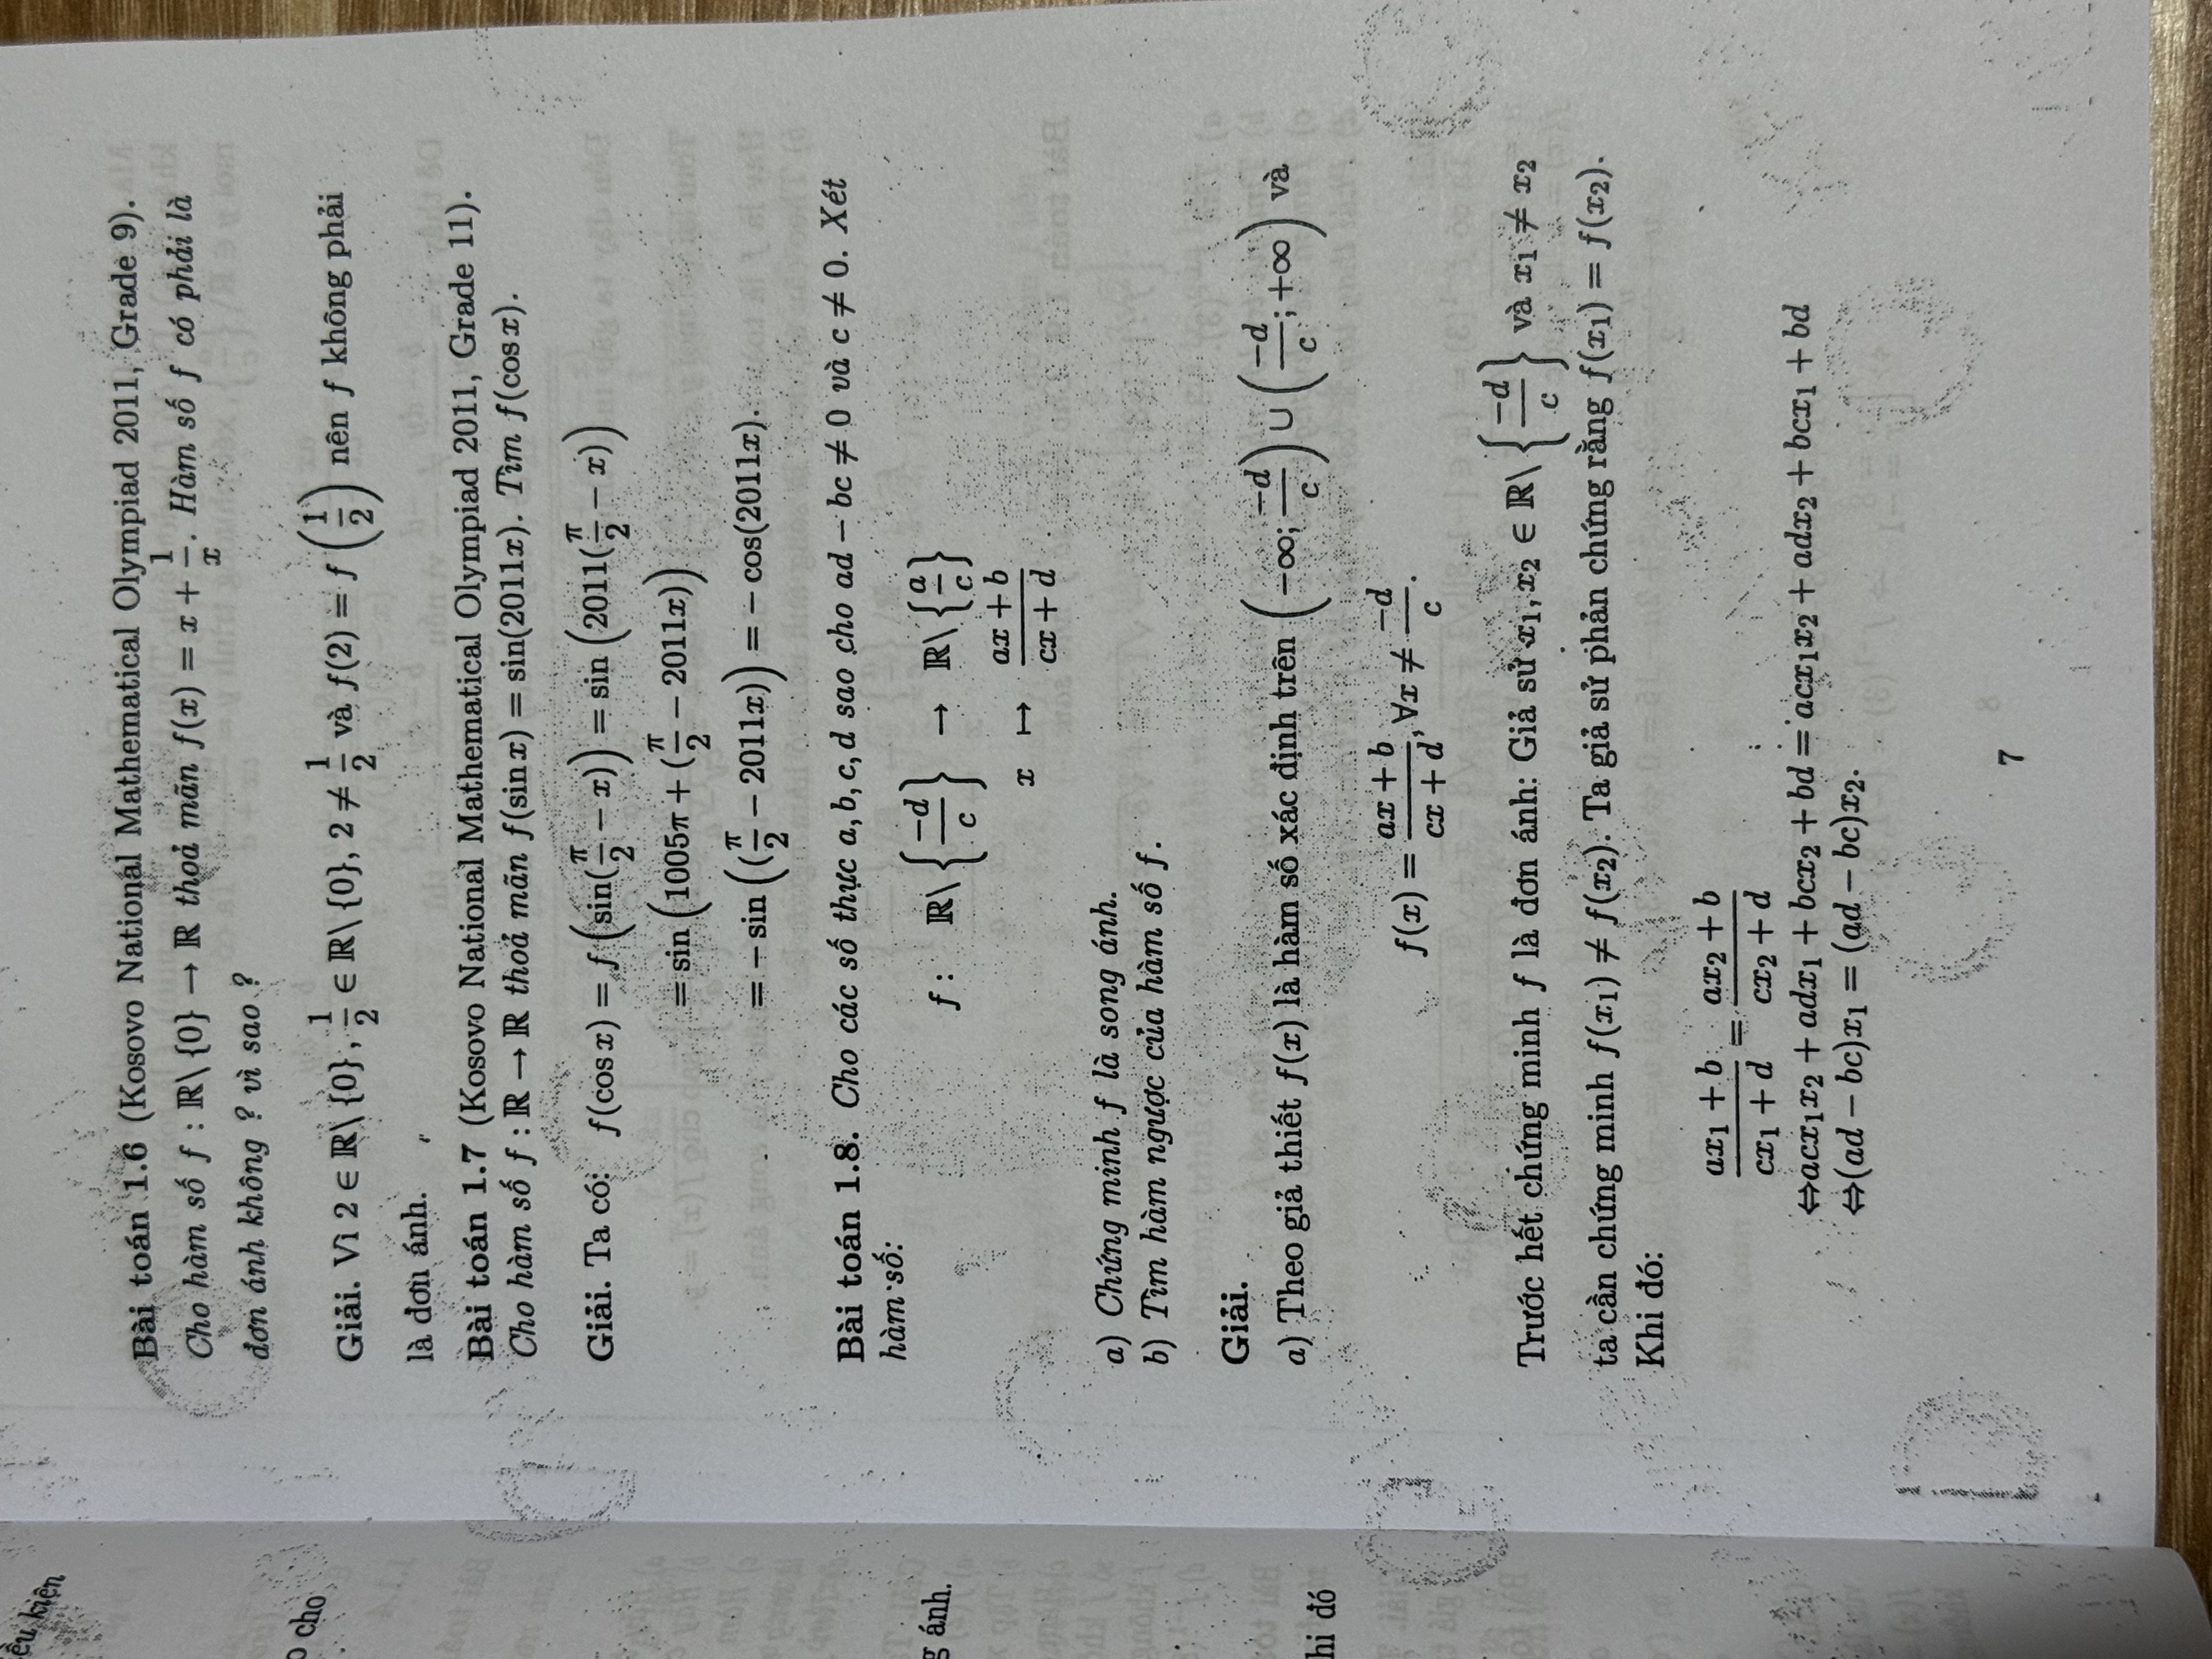 Bài toán 1.6 (Kosovo National Mathematical Olympiad 2011, Grade 9).
Cho hàm số f : ℝ\{0} → ℝ thoả mãn f(x) = x + 1/x. Hàm số f có phải là
đơn ánh không ? vì sao ?
Giải. Vì 2 ∈ ℝ\{0}, 1/2 ∈ ℝ\{0}, 2 ≠ 1/2 và f(2) = f(1/2) nên f không phải
là đơn ánh.
Bài toán 1.7 (Kosovo National Mathematical Olympiad 2011, Grade 11).
Cho hàm số f : ℝ → ℝ thoả mãn f(sin x) = sin(2011x). Tìm f(cos x).
Giải. Ta có: f(cos x) = f(sin(π/2 − x)) = sin(2011(π/2 − x))
= sin(1005π + (π/2 − 2011x))
= − sin((π/2 − 2011x)) = − cos(2011x).
Bài toán 1.8. Cho các số thực a, b, c, d sao cho ad − bc ≠ 0 và c ≠ 0. Xét
hàm số:
f : ℝ\{−d/c} → ℝ\{a/c}
x ↦ (ax + b)/(cx + d)
a) Chứng minh f là song ánh.
b) Tìm hàm ngược của hàm số f.
Giải.
a) Theo giả thiết f(x) là hàm số xác định trên (−∞; −d/c) ∪ (−d/c; +∞) và
f(x) = (ax + b)/(cx + d), ∀x ≠ −d/c.
Trước hết chứng minh f là đơn ánh: Giả sử x₁, x₂ ∈ ℝ\{−d/c} và x₁ ≠ x₂
ta cần chứng minh f(x₁) ≠ f(x₂). Ta giả sử phản chứng rằng f(x₁) = f(x₂).
Khi đó:
(ax₁ + b)/(cx₁ + d) = (ax₂ + b)/(cx₂ + d)
⇔acx₁x₂ + adx₁ + bcx₂ + bd = acx₁x₂ + adx₂ + bcx₁ + bd
⇔(ad − bc)x₁ = (ad − bc)x₂.
7
kiện
cho
ánh.
hi đó